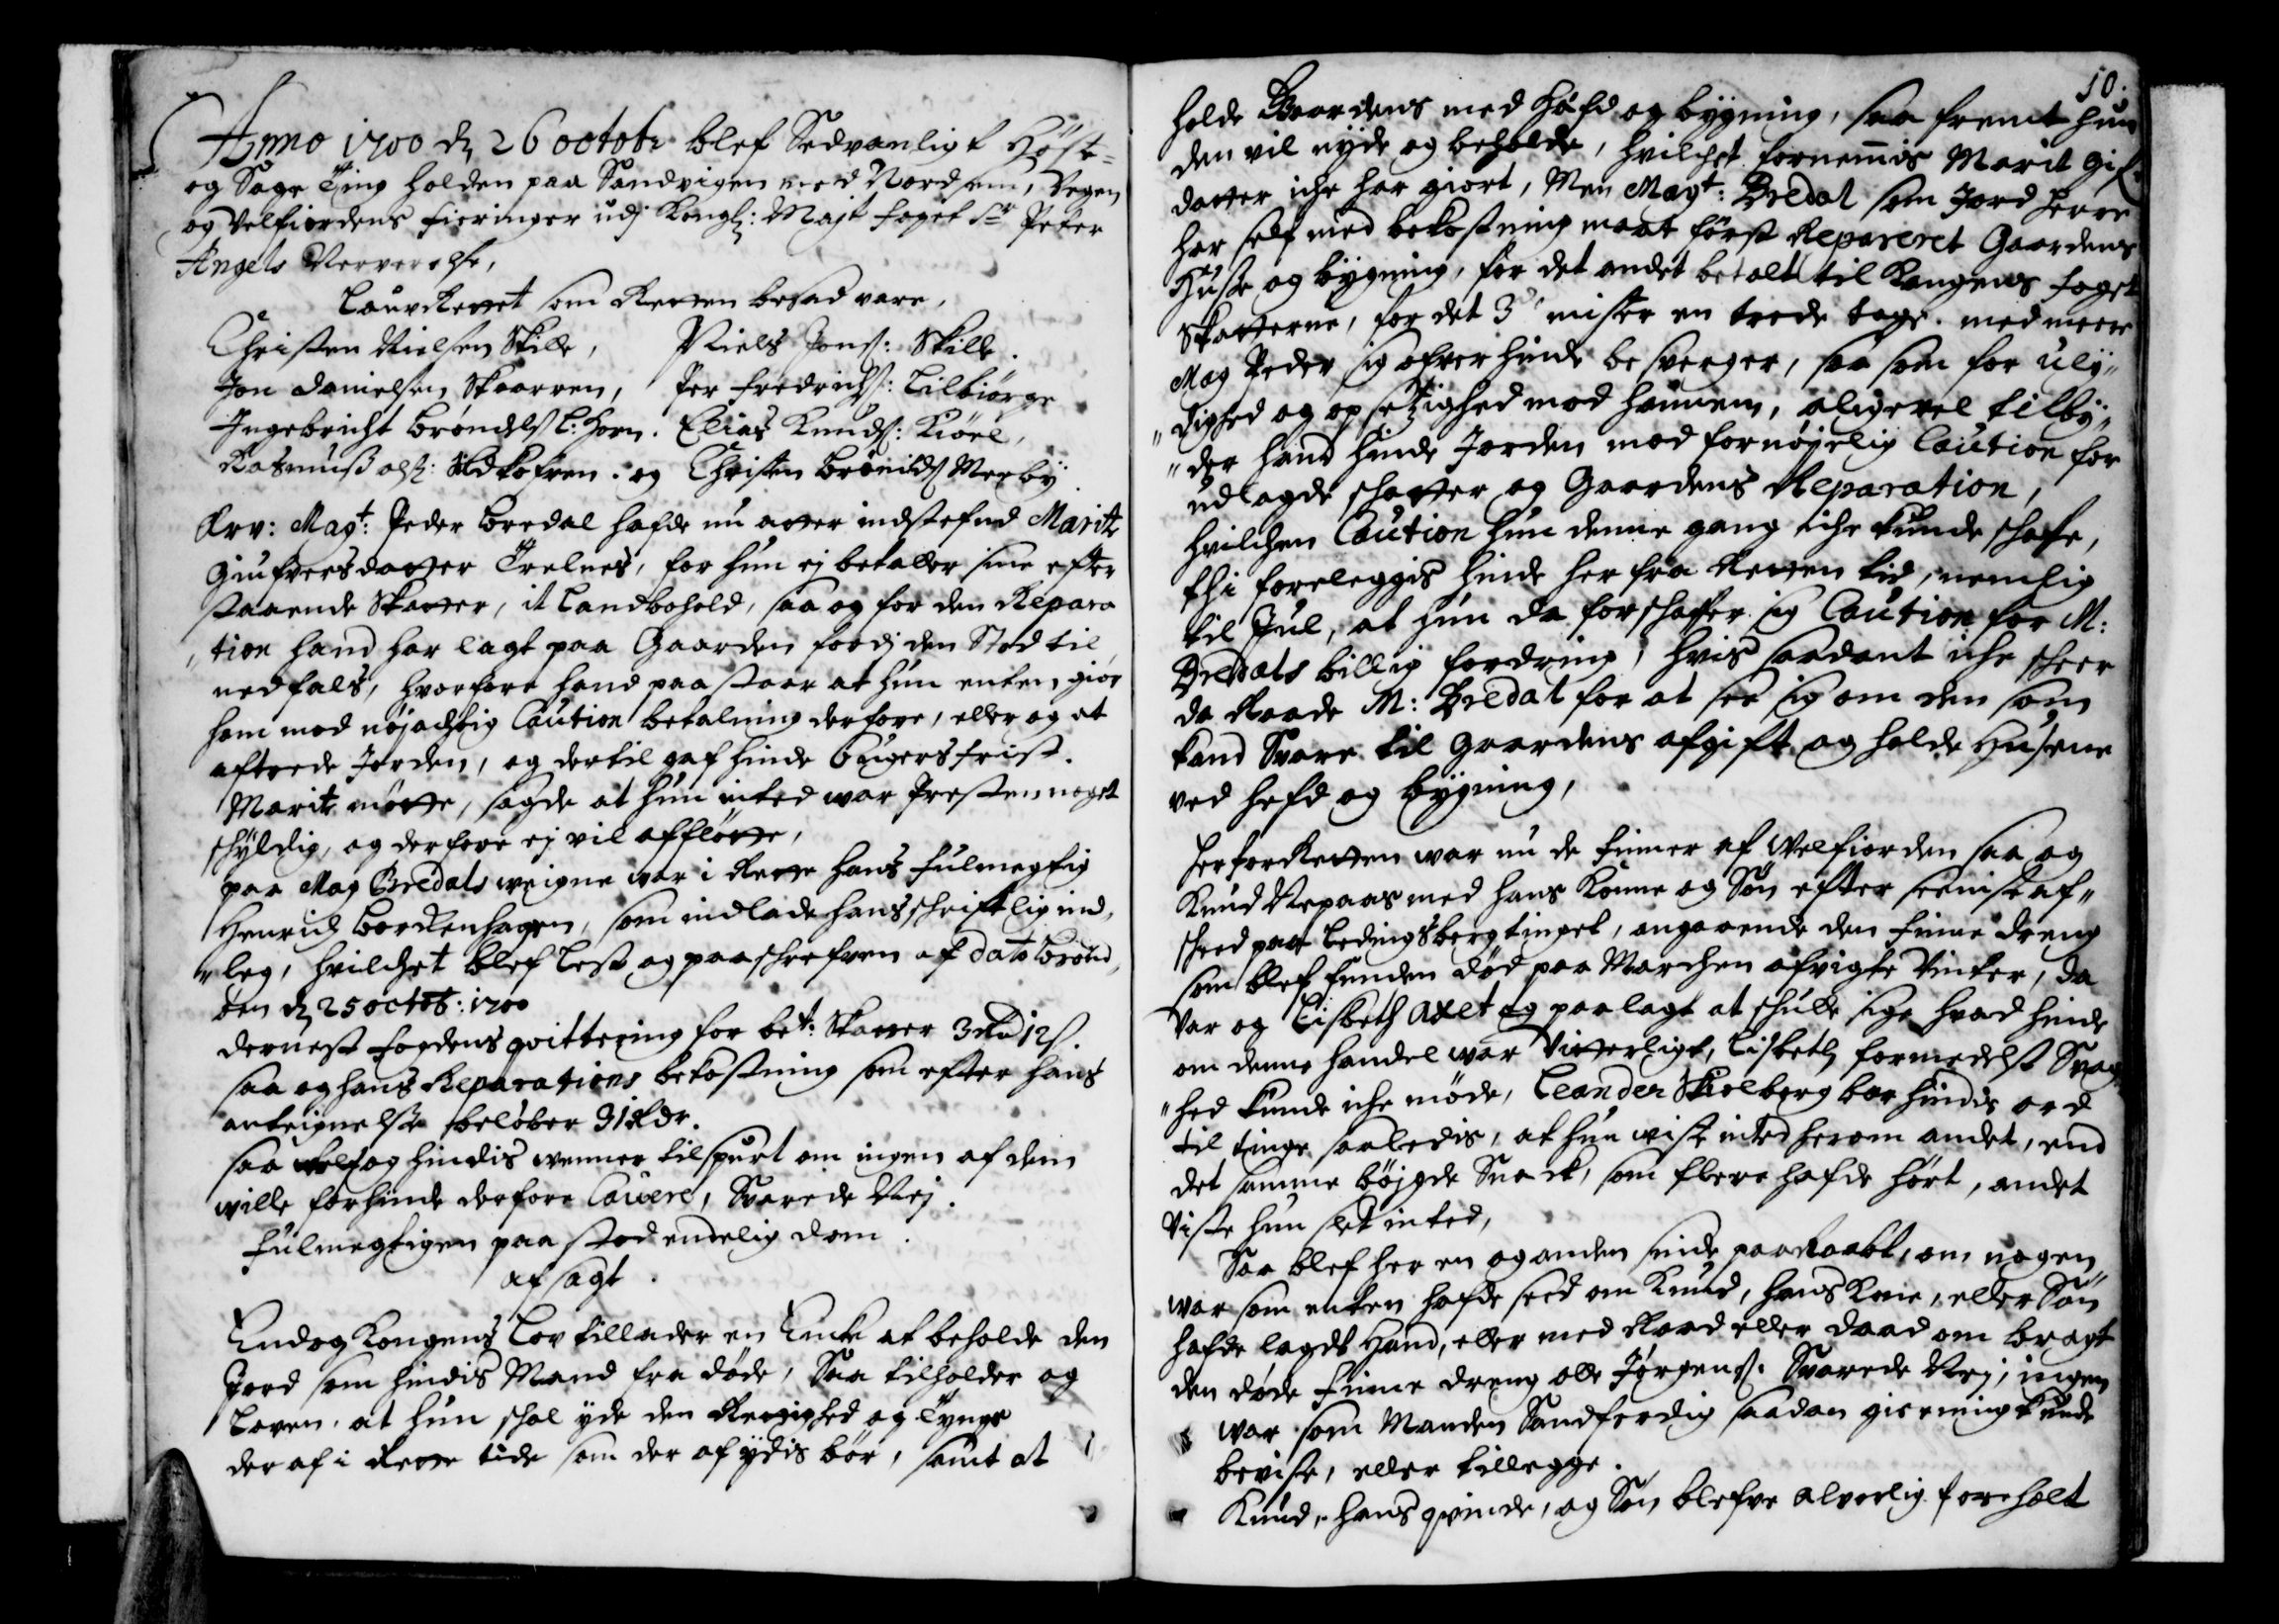 Anno 1700 d 26 octobr blef Sedvanligt Høste-
og Sage Ting holden paa Sandvigen med Nordhuus, Vegen
og Velfiordens fieringer udj Kongl: Majt foget Sr Peter
Angels Nerverelse,
Laurettet som Retten besad vare,
Christen Nielsen Skille, Niels Jons: Skille.
Jon Danielsen Skaarren, Per Fredrichs: Tilbiørge
Ingebricht Brøndels L: Horn. Elias Knuds: Kiøel,
Rasmuss ols: og Christen Brønilds Merby
Erv: Magt: Peder Bredal hafde nu atter indstefnd Marite
Giufversdatter Trelnes, for hun ej betaller sine efter
staaende Skatter, it Landbohold, saa og for den Repara
"tion hand har lagt paa Gaarden fordj den Stod til
nedfals, hvorfore hand paastaar at hun enten giør
ham mod nøjachtig Caution betalning derfore, eller og at
aftrede Jorden, og dertil gaf hinde Bugers frist.
Marite møtte, sagde at hun inted war Presten noget
schyldig, og derfore ej vil afflötte,
paa Mag Bredals weigne war i Rette hans fulmegtig
Henrich Borkenhagen, som indlade hans schriftlig ind,
"leg, hvilchet blef lest og paaschrefven af dato Brønd,
den d 25 octob: 1700
dernest fogdens qvittering for bet: Skatter 3 Rd 12 s.
saa og hans Reparations bekostning som efter hans
anteignelse beløber 31 Rdr.
saa velsom og hindis venner tilspurt om ingen af dem
wille forhinde derfore Cavere, Svarede Nej.
Fulmegtigen paa stod endelig dom.
afsagt.
Endog Kongens Lov tillader en Encke at beholde den
Jord som hindis Mand fra døde, Saa tilholder og
Loven, at hun schal yde den Rettighed og Tynge
der af i Rette tide som der af ydis bør, samt at
10.
holde Gaardens med Hæfd og bygning, saa fremt hun
den vil nyde og beholde, hvilchet fornemis Marit Gif.
datter iche har giort, Men Magt: Bredal som Jord Herre
har self med bekostning maat først Repareret Gaardens
Huse og bygning, for det andet betalt til Kongens foget
Skatterne, for det 3de mister en trede tage. med mere
Mag Peder sig ofver hinde besverger, saa som for uly"
"dighed og opsetzighed mod hannem, aligevel tilby"
"der hand hinde Jorden mod fornøyelig Caution for
udlagde schatter og Gaardens Reparation,
hvilchen Caution hun denne gang iche kunde schafe,
thi foreleggis hinde her fra Retten tid, nemlig
til Jul, at hun da forschaffer sig Caution for M:
Bredals billig fordring, hvis saadant iche scheer
da Raade M: Bredal for at see sig om den som
kand Svare til Gaardens afgift og holde Husene
ved hefd og bygning,
Herfor Retten war nu de Finner af Welfiorden saa og
Knud Nepaas med hans Konne og Søn efter seeniste af"
scheed paa Ledingsberg tinget, angaaende den Finne dreng
som blef funden død paa Marchen afvigte Vinter, da
var og Lisbeth Axlet og paalagt at schulle sige hvad hinde
om denne handel war vitterligt, Lisbeth formedelst Svag
"hed kunde iche møde, Leander Skielberg bar hindis ord
til tinge saaledis, at hun wiste inted herom andet, end
det samme bøjgde Snack, som flere hafde hørt, andet
viste hun slet inted,
Saa blef her en og anden sinde paa Raabt, om nogen
war som enten hafde seed om Knud, hans Kone, eller Søn
hafde lagdt Hand, eller med Raad eller daad om bragt
den døde Finne dreng olle Jørgens. Svarede Nej, ingen
war som Manden Sandferdig saadan gierning kunde
bevise, eller tillegge.
Knud, hans qvinde, og Søn blefve alvorlig foreholt